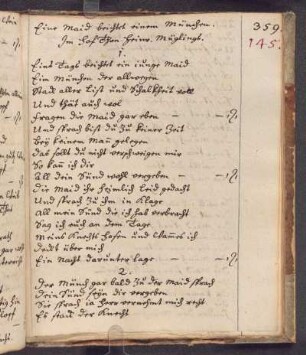 359
145.
Eine Maid beichtet einem München.
Im hof Thon Heinr. Müglings.
1.
Eins Tags beichtet ein iunge Maid
Ein München der allwegen
Stack aller List und Schalkheit voll
Und thät auch wol
fragen die Maid gar eben
Und sprach bist du zu keiner Zeit
Bey keinem Mann gelegen
das solt du nicht verschweigen mir
So kan ich dir
All dein Sünd wohl vergeben
die Maid ihr heimlich Leid gedacht
Und sprach zu ihm in Klage
All mein Sünd die ich hab verbracht
Sag ich euch an dem Tage
Meins Knechts hosen und
deckt über mich
Ein Nacht darunter lage
2.
Der Münch gar bald zu der Maid sprach
dein Sünd seyn dir vergeben
Sie sprach ja Herr vernehmt mich recht
Es stack der Knecht